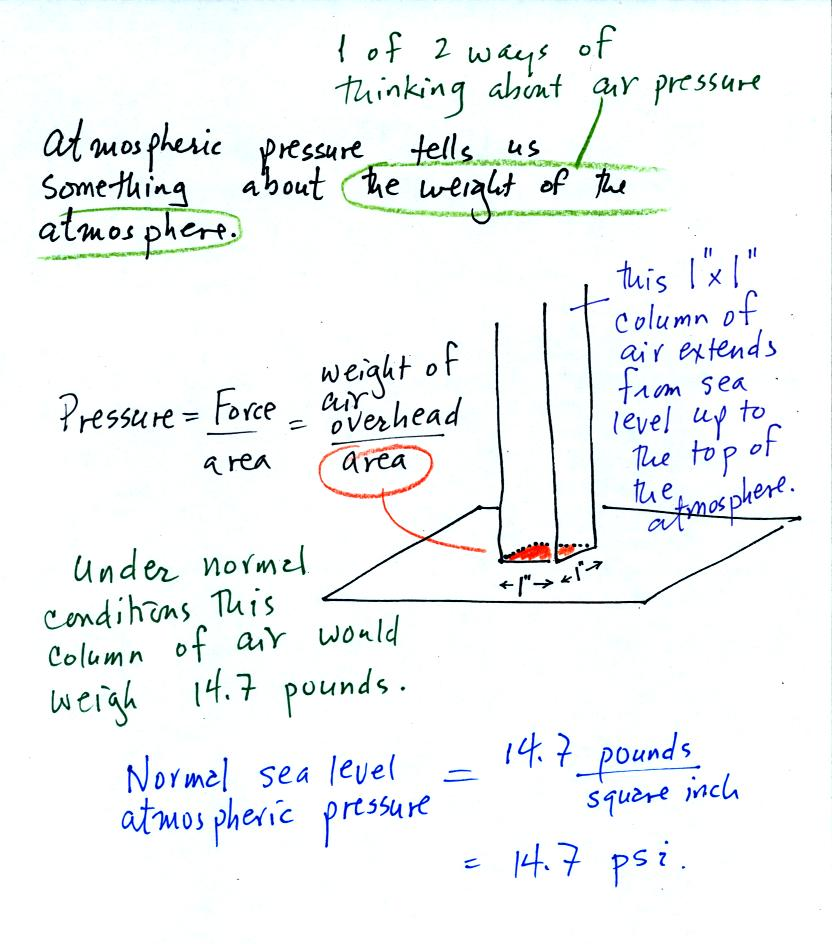 1 of 2 ways of
thinking about air pressure
atmospheric pressure tells us
something about the weight of the
atmosphere.
this 1"x1"
column of
air extends
from sea
level up to
the top of
the atmosphere.
Pressure = Force / area = weight of air overhead / area
←1"→ ←1"→
Under normal
conditions This
column of air would
weigh 14.7 pounds.
Normal sea level
atmospheric pressure
= 14.7 pounds
square inch
= 14.7 psi.